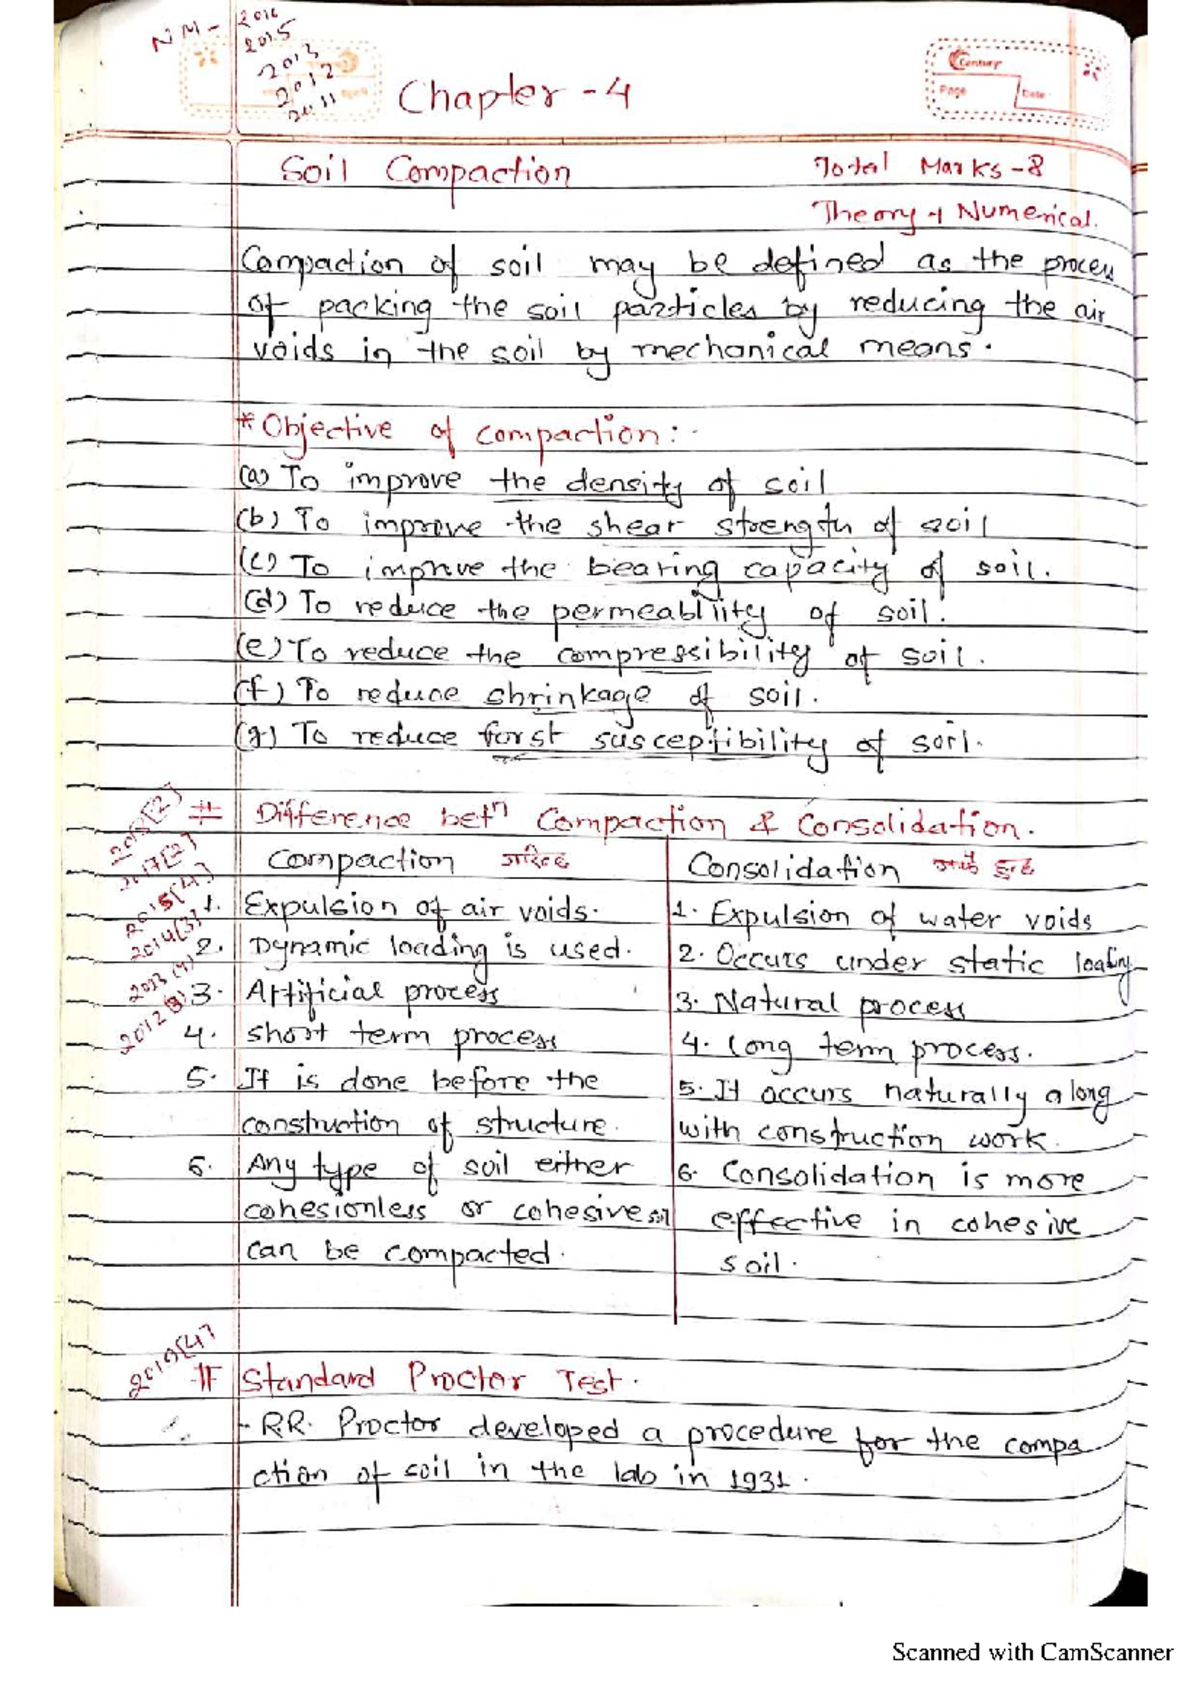 NM - 2016
2015
2013
2012
2011
Century
Page
Date
Chapter - 4
Soil Compaction
Total Marks - 8
Theory + Numerical.
Compaction of soil may be defined as the process
of packing the soil particles by reducing the air
voids in the soil by mechanical means.
* Objective of compaction:-
(a) To improve the density of soil
(b) To improve the shear strength of soil
(c) To improve the bearing capacity of soil.
(d) To reduce the permeabliity of soil.
(e) To reduce the compressibility of soil.
(f) To reduce shrinkage of soil.
(g) To reduce forst susceptibility of soil.
# Difference betn Compaction & Consolidation.
2017[2]
2015[4]
2014(3)
2013(4)
2012(8)
Compaction
1. Expulsion of air voids.
2. Dynamic loading is used.
3. Artificial process
4. short term process
5. It is done before the
construction of structure.
6. Any type of soil either
cohesionless or cohesive soil
can be compacted.
Consolidation
1. Expulsion of water voids
2. Occurs under static loading
3. Natural process
4. Long term process.
5. It occurs naturally along
with construction work.
6. Consolidation is more
effective in cohesive
soil.
# Standard Proctor Test.
- R.R. Proctor developed a procedure for the compa
ction of soil in the lab in 1931.
Scanned with CamScanner